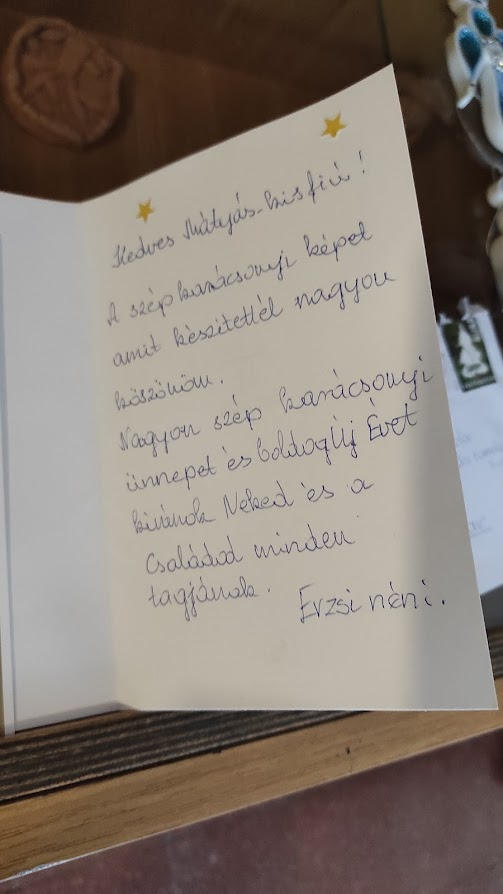 Kedves Mátyás-kisfiú!
A szép karácsonyi képet
amit készitettél nagyon
köszönöm.
Nagyon szép karácsonyi
ünnepet és boldog Új Évet
kivánok Neked és a
Családod minden
tagjának.
Erzsi néni.